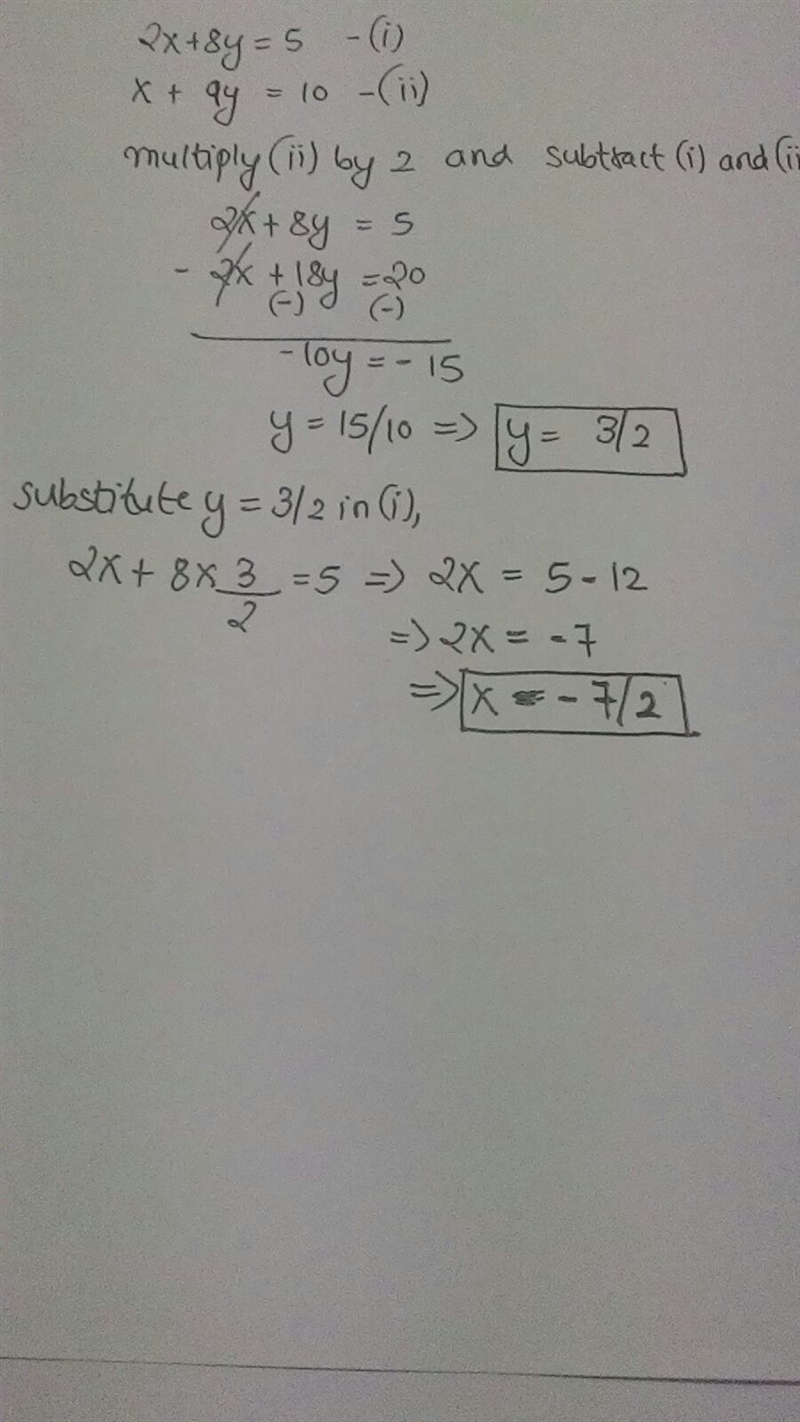 2x+8y = 5 -(i)
x + 9y = 10 -(ii)
multiply (ii) by 2 and subtract (i) and (ii
2x + 8y = 5
- 2x + 18y = 20
(-) (-)
-10y = - 15
y = 15/10 => y = 3/2
substitute y = 3/2 in (i),
2x + 8x 3/2 = 5 => 2x = 5 - 12
=> 2x = -7
=> x = - 7/2